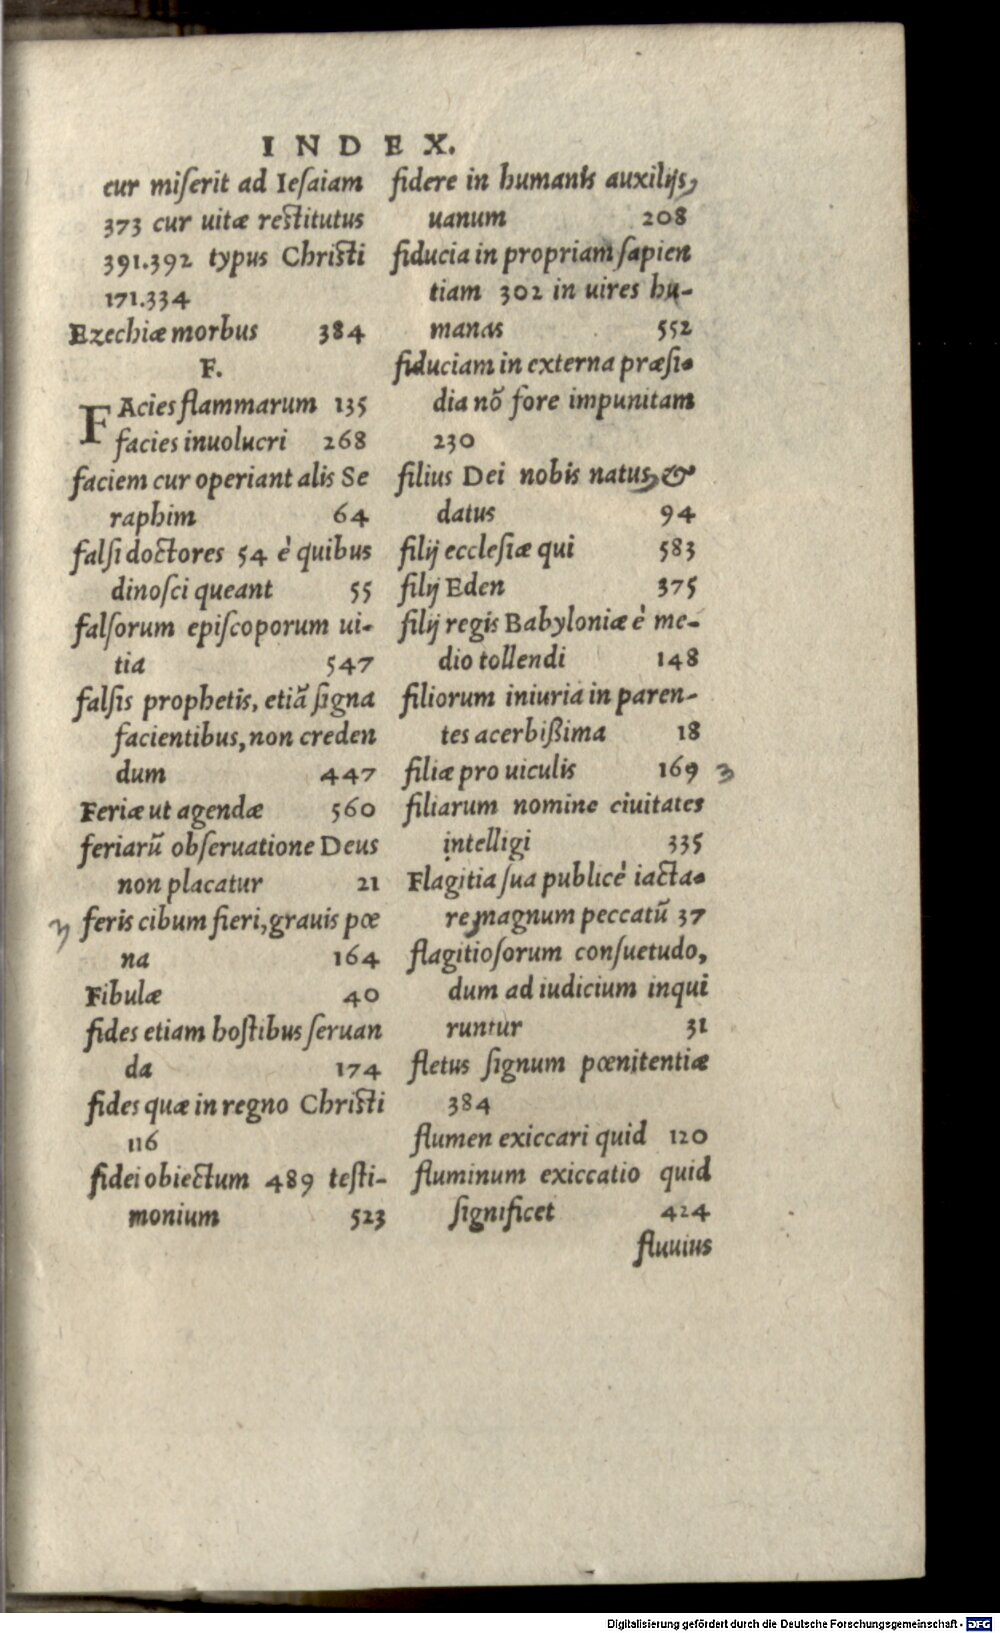 INDEX.
cur miſerit ad Ieſaiam
373 cur uitæ reſtitutus
391.392 typus Chriſti
171.334
Ezechiæ morbus 384
F.
FAcies flammarum 135
facies inuolucri 268
faciem cur operiant alis Se
raphim 64
falſi doctores 54 è quibus
dinoſci queant 55
falſorum epiſcoporum ui-
tia 547
falſis prophetis, etiã ſigna
facientibus, non creden
dum 447
Feriæ ut agendæ 560
feriarũ obſeruatione Deus
non placatur 21
feris cibum fieri, grauis pœ
na 164
Fibulæ 40
fides etiam hoſtibus ſeruan
da 174
fides quæ in regno Chriſti
116
fidei obiectum 489 teſti-
monium 523
fidere in humanis auxilijs,
uanum 208
fiducia in propriam ſapien
tiam 302 in uires hu-
manas 552
fiduciam in externa præſi-
dia nõ fore impunitam
230
filius Dei nobis natus, &
datus 94
filij eccleſiæ qui 583
filij Eden 375
filij regis Babyloniæ è me-
dio tollendi 148
filiorum iniuria in paren-
tes acerbißima 18
filiæ pro uiculis 169
filiarum nomine ciuitates
intelligi 335
Flagitia ſua publicè iacta-
re, magnum peccatũ 37
flagitioſorum conſuetudo,
dum ad iudicium inqui
runtur 31
fletus ſignum pœnitentiæ
384
flumen exiccari quid 120
fluminum exiccatio quid
ſignificet 424
fluuius
Digitalisierung gefördert durch die Deutsche Forschungsgemeinschaft - DFG